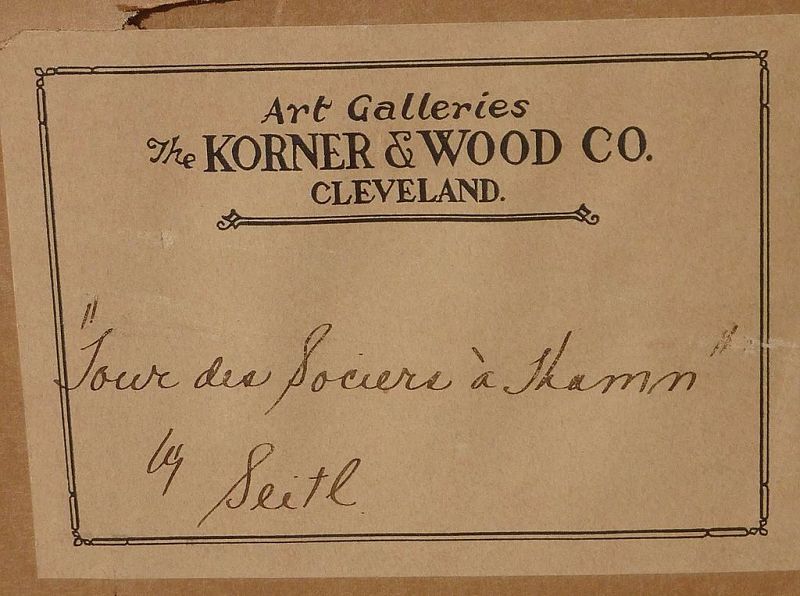 Art Galleries
The KORNER & WOOD CO.
CLEVELAND.
"Tour des Sociers à Thamn"
by Seitl